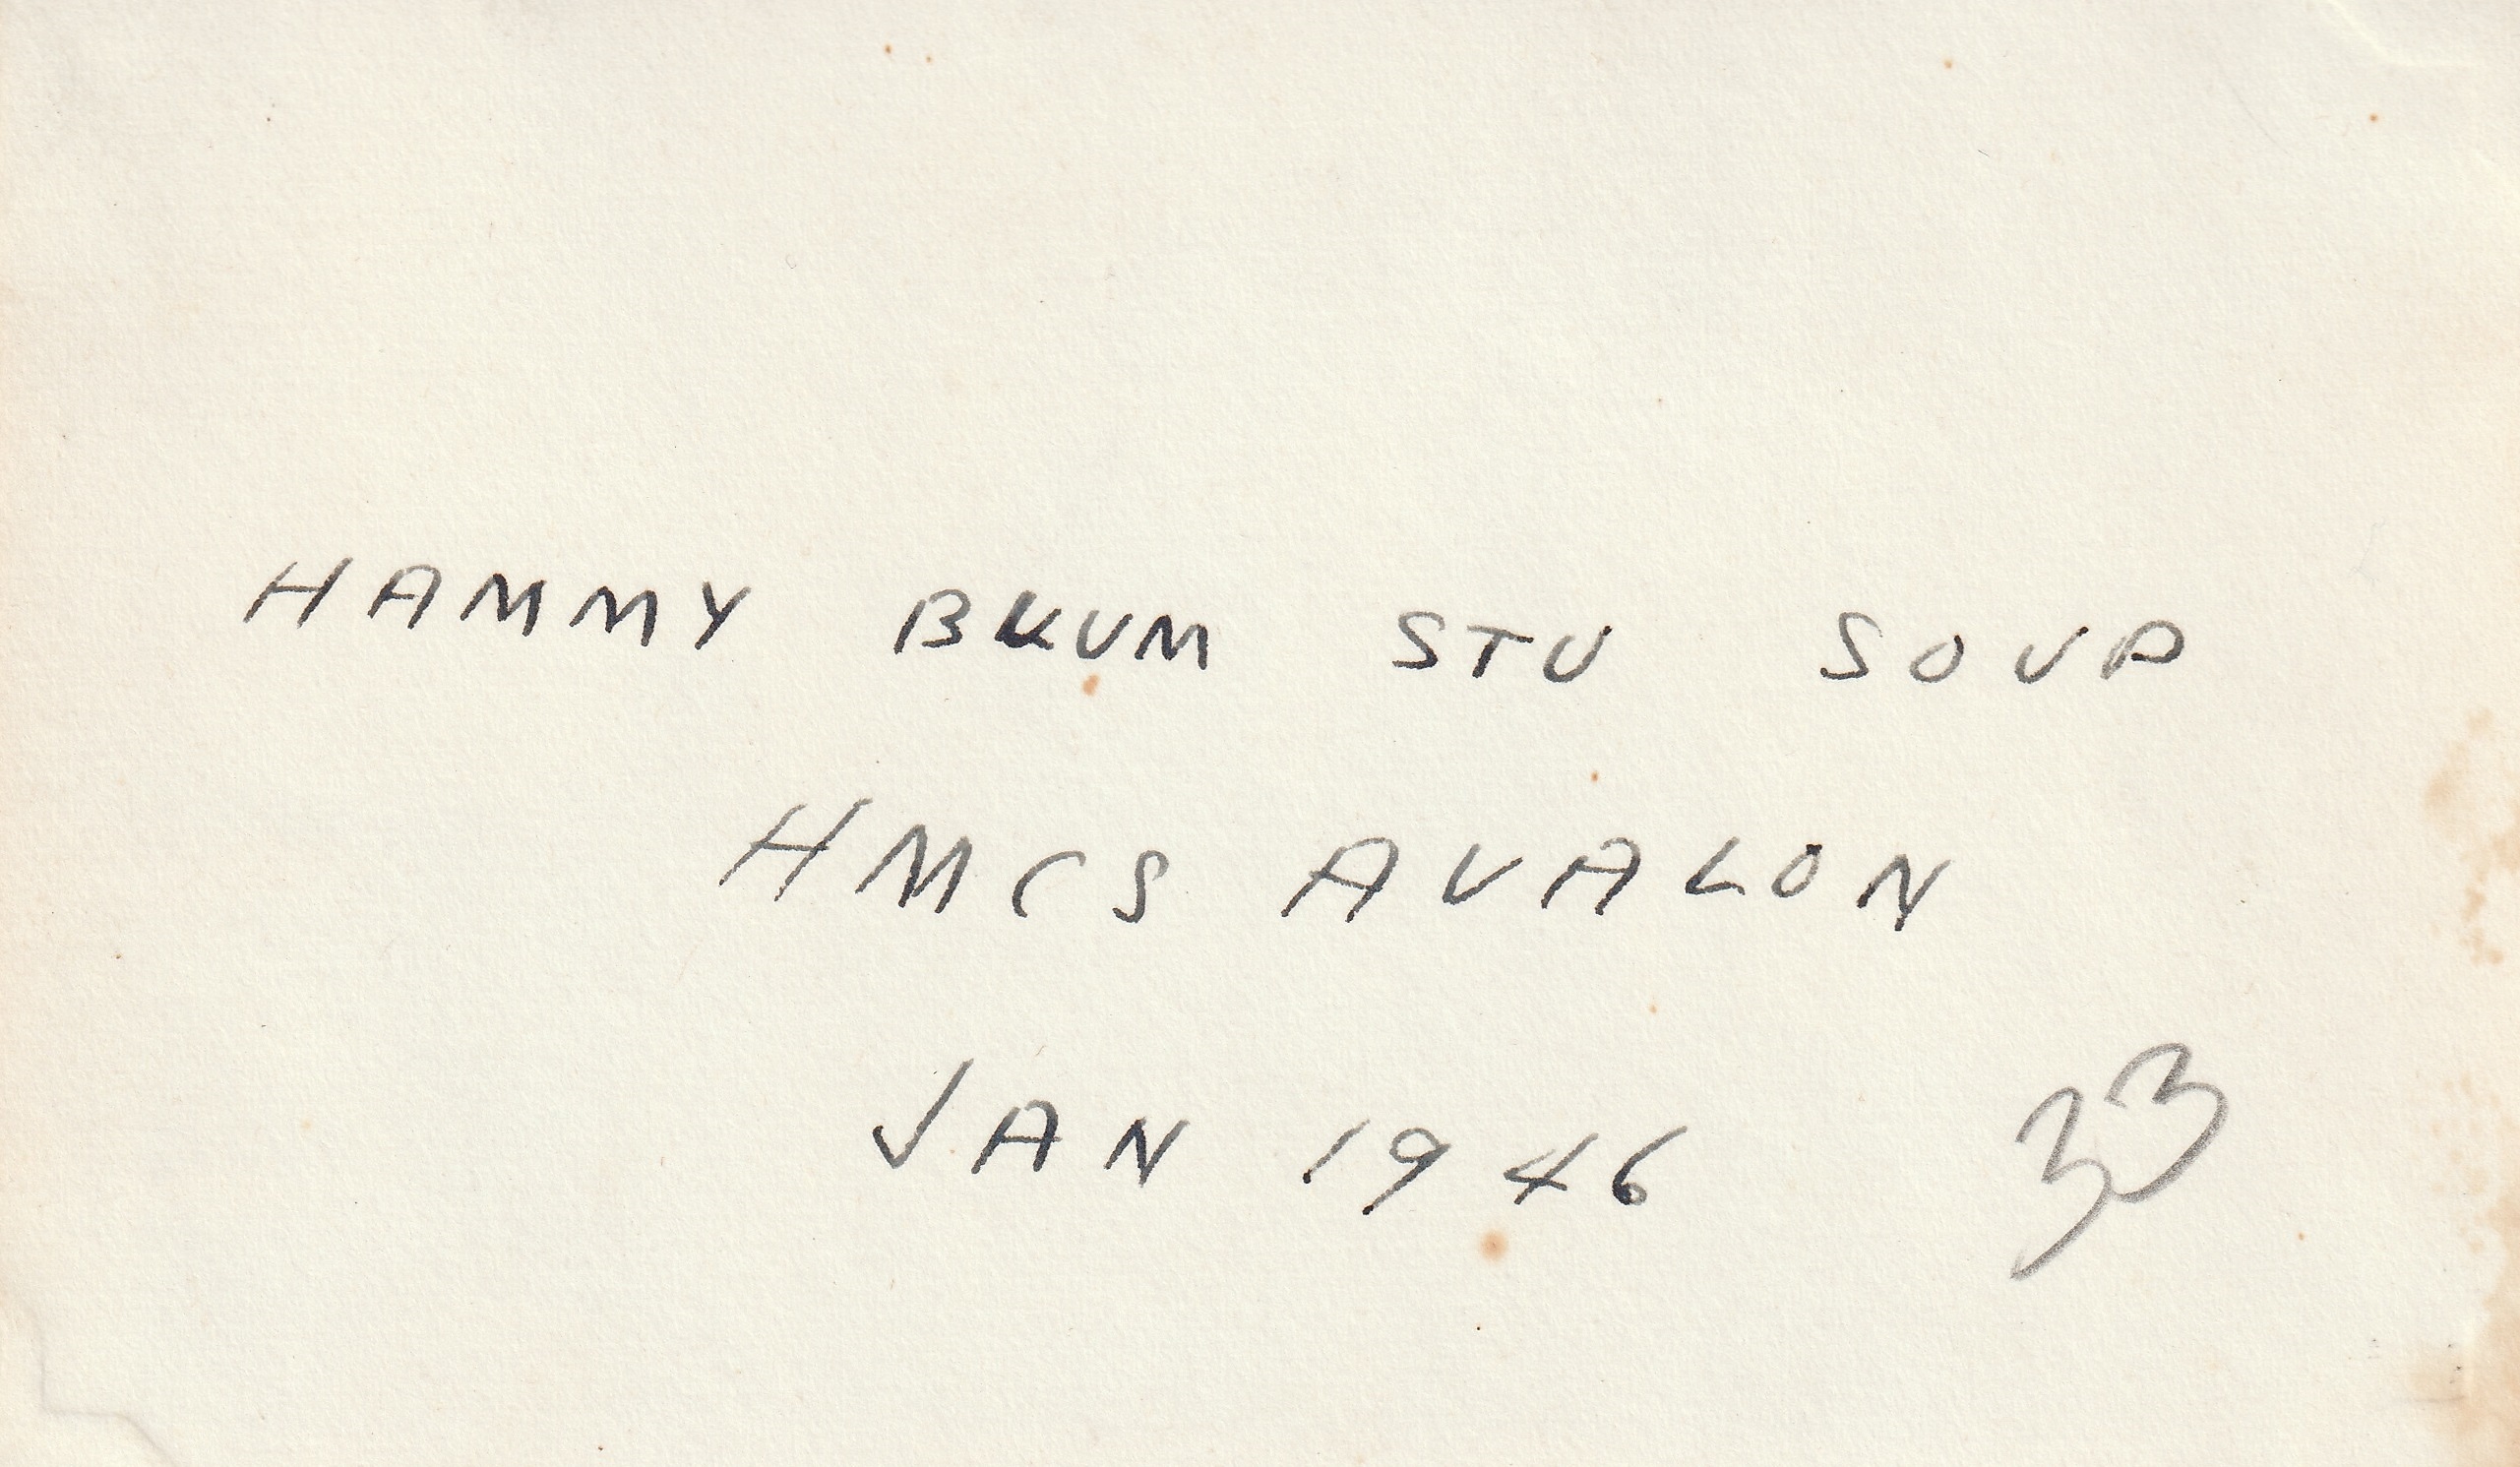 HAMMY BLUM STU SOUP
HMCS AVALON
JAN 1946 33